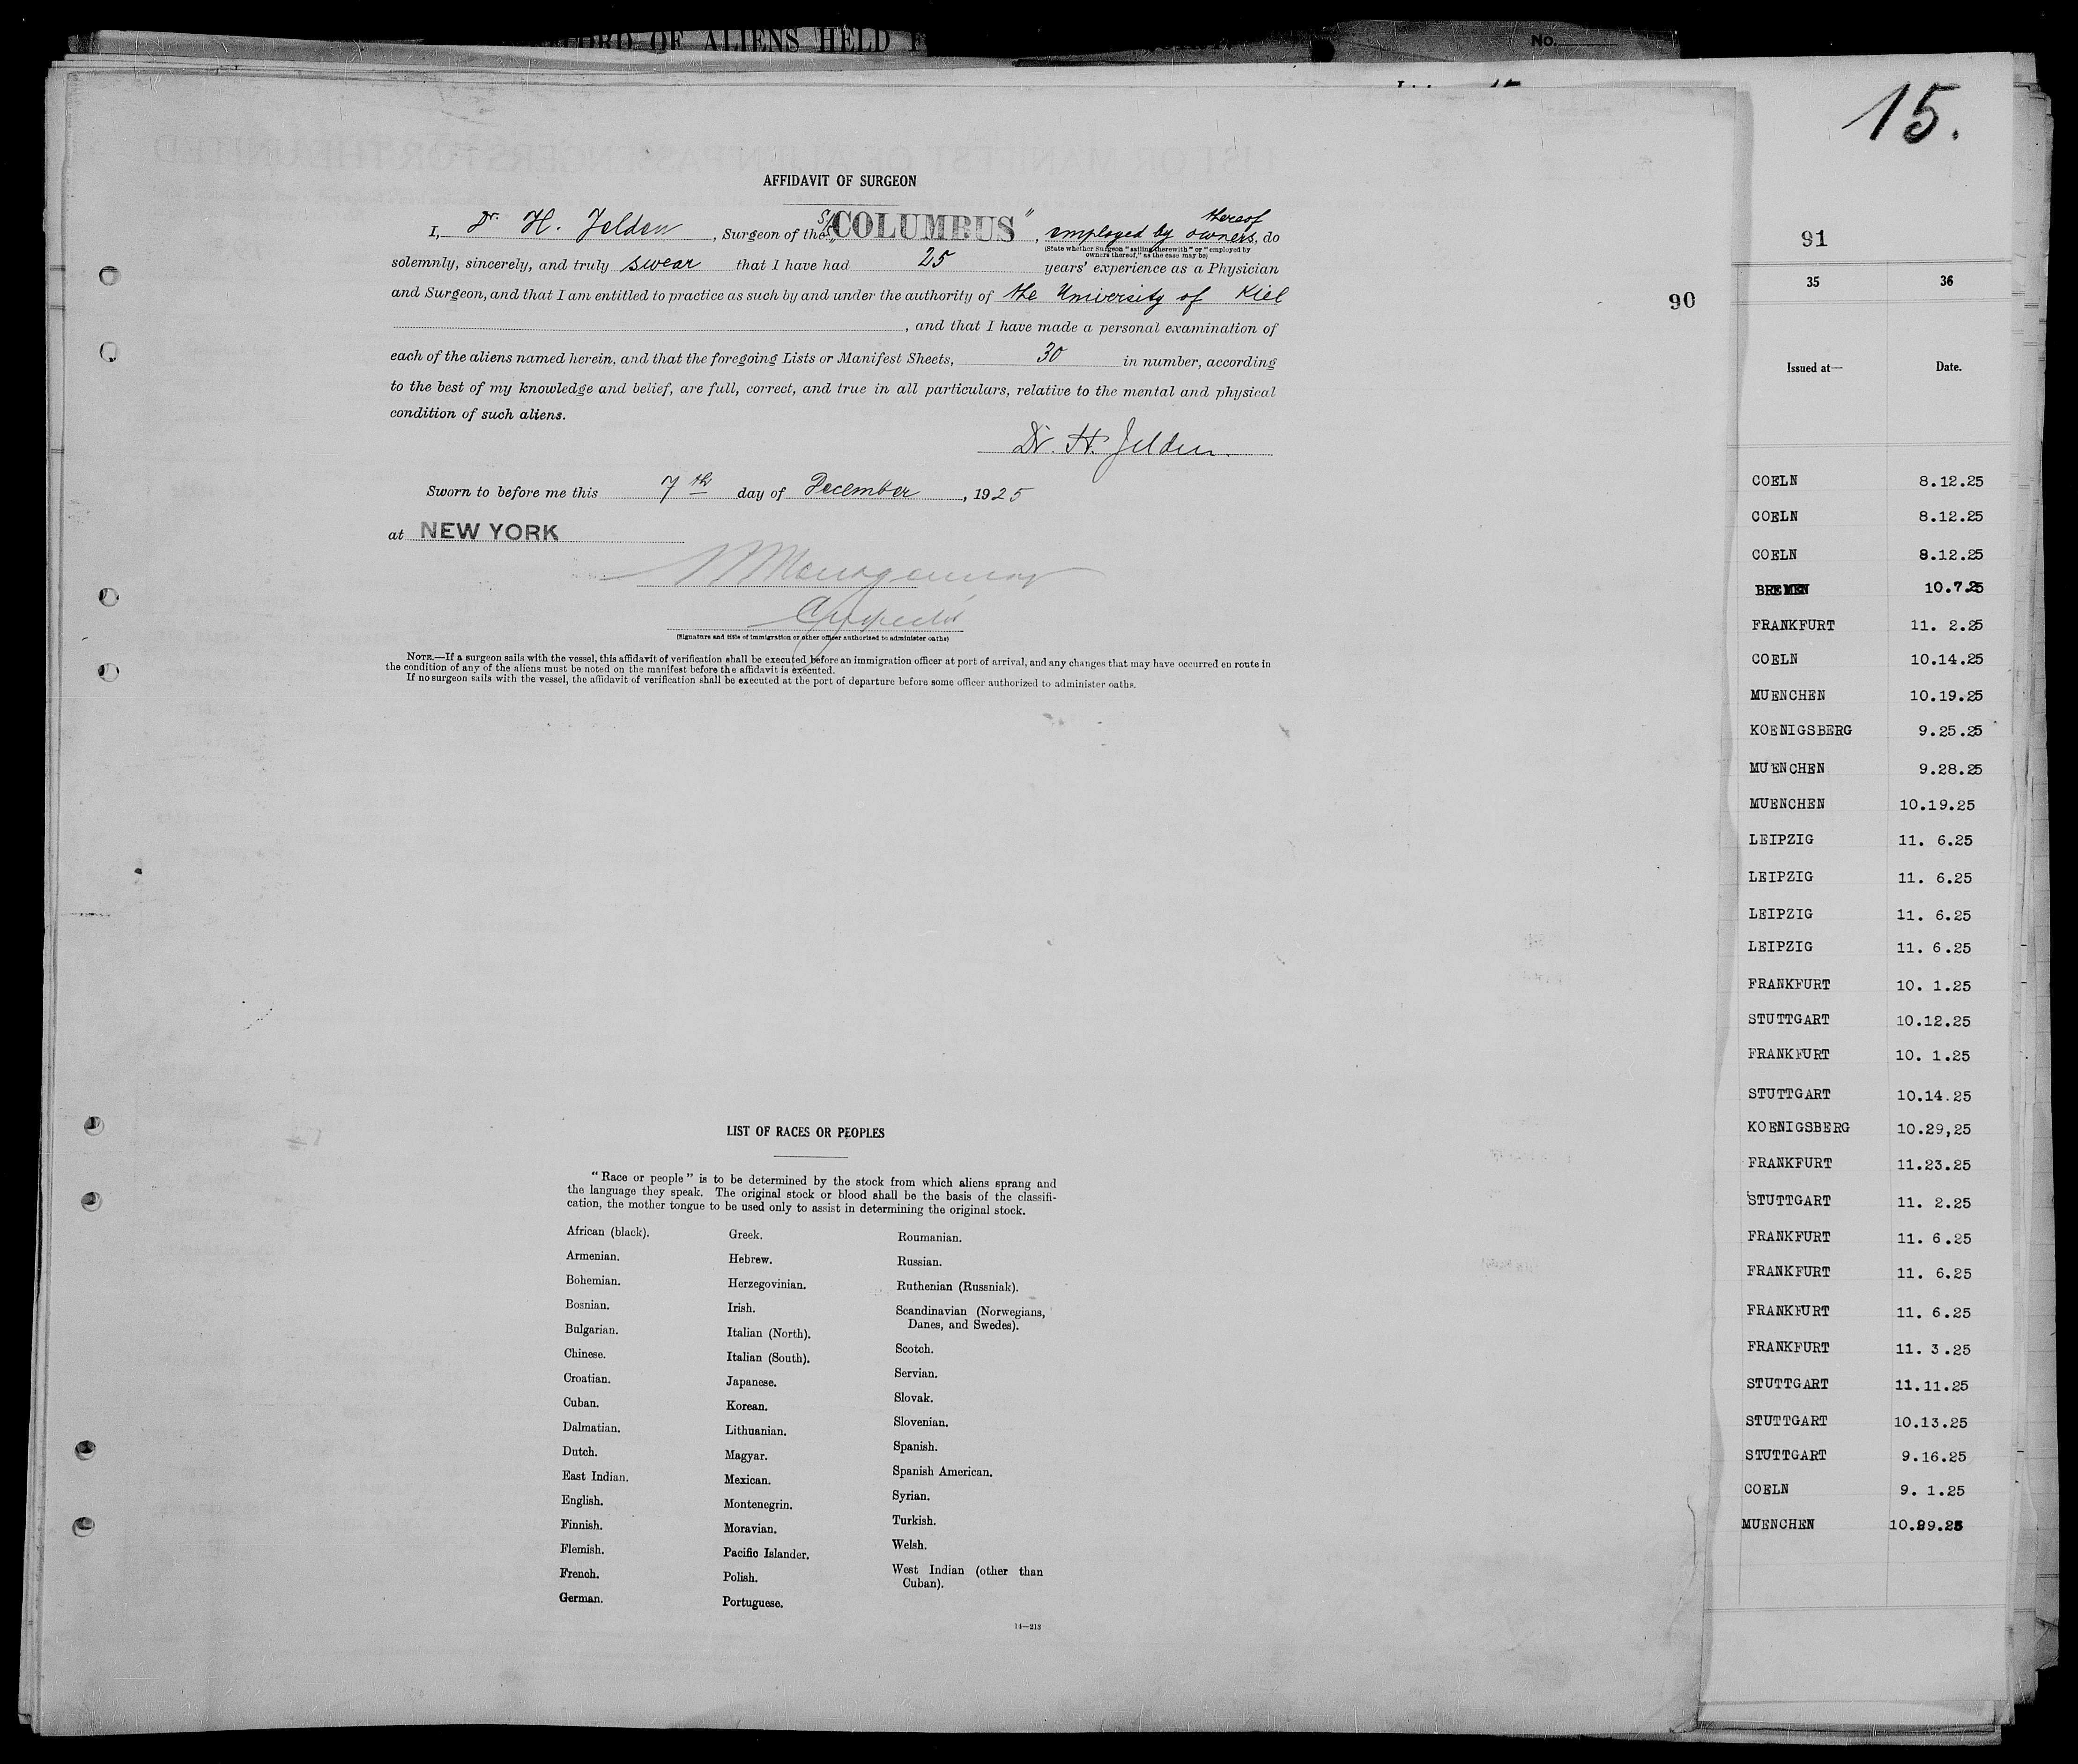 RECORD OF ALIENS HELD F
No.
15.
AFFIDAVIT OF SURGEON
thereof
I, Dr. H. Jelden, Surgeon of the S/S "COLUMBUS", employed by owners, do
(State whether Surgeon "sailing therewith" or "employed by
owners thereof," as the case may be)
solemnly, sincerely, and truly swear that I have had 25 years' experience as a Physician
and Surgeon, and that I am entitled to practice as such by and under the authority of the University of Kiel
, and that I have made a personal examination of
each of the aliens named herein, and that the foregoing Lists or Manifest Sheets, 30 in number, according
to the best of my knowledge and belief, are full, correct, and true in all particulars, relative to the mental and physical
condition of such aliens.
Dr. H. Jelden.
Sworn to before me this 7th day of December, 1925
at NEW YORK
(Signature and title of immigration or other officer authorized to administer oaths)
NOTE.—If a surgeon sails with the vessel, this affidavit of verification shall be executed before an immigration officer at port of arrival, and any changes that may have occurred en route in
the condition of any of the aliens must be noted on the manifest before the affidavit is executed.
If no surgeon sails with the vessel, the affidavit of verification shall be executed at the port of departure before some officer authorized to administer oaths.
LIST OF RACES OR PEOPLES
"Race or people" is to be determined by the stock from which aliens sprang and
the language they speak. The original stock or blood shall be the basis of the classifi-
cation, the mother tongue to be used only to assist in determining the original stock.
African (black).
Armenian.
Bohemian.
Bosnian.
Bulgarian.
Chinese.
Croatian.
Cuban.
Dalmatian.
Dutch.
East Indian.
English.
Finnish.
Flemish.
French.
German.
Greek.
Hebrew.
Herzegovinian.
Irish.
Italian (North).
Italian (South).
Japanese.
Korean.
Lithuanian.
Magyar.
Mexican.
Montenegrin.
Moravian.
Pacific Islander.
Polish.
Portuguese.
Roumanian.
Russian.
Ruthenian (Russniak).
Scandinavian (Norwegians,
Danes, and Swedes).
Scotch.
Servian.
Slovak.
Slovenian.
Spanish.
Spanish American.
Syrian.
Turkish.
Welsh.
West Indian (other than
Cuban).
14—213
90
91
35 36
Issued at— Date.
COELN 8.12.25
COELN 8.12.25
COELN 8.12.25
BREMEN 10.7.25
FRANKFURT 11. 2.25
COELN 10.14.25
MUENCHEN 10.19.25
KOENIGSBERG 9.25.25
MUENCHEN 9.28.25
MUENCHEN 10.19.25
LEIPZIG 11. 6.25
LEIPZIG 11. 6.25
LEIPZIG 11. 6.25
LEIPZIG 11. 6.25
FRANKFURT 10. 1.25
STUTTGART 10.12.25
FRANKFURT 10. 1.25
STUTTGART 10.14.25
KOENIGSBERG 10.29,25
FRANKFURT 11.23.25
STUTTGART 11. 2.25
FRANKFURT 11. 6.25
FRANKFURT 11. 6.25
FRANKFURT 11. 6.25
FRANKFURT 11. 3.25
STUTTGART 11.11.25
STUTTGART 10.13.25
STUTTGART 9.16.25
COELN 9. 1.25
MUENCHEN 10.29.25